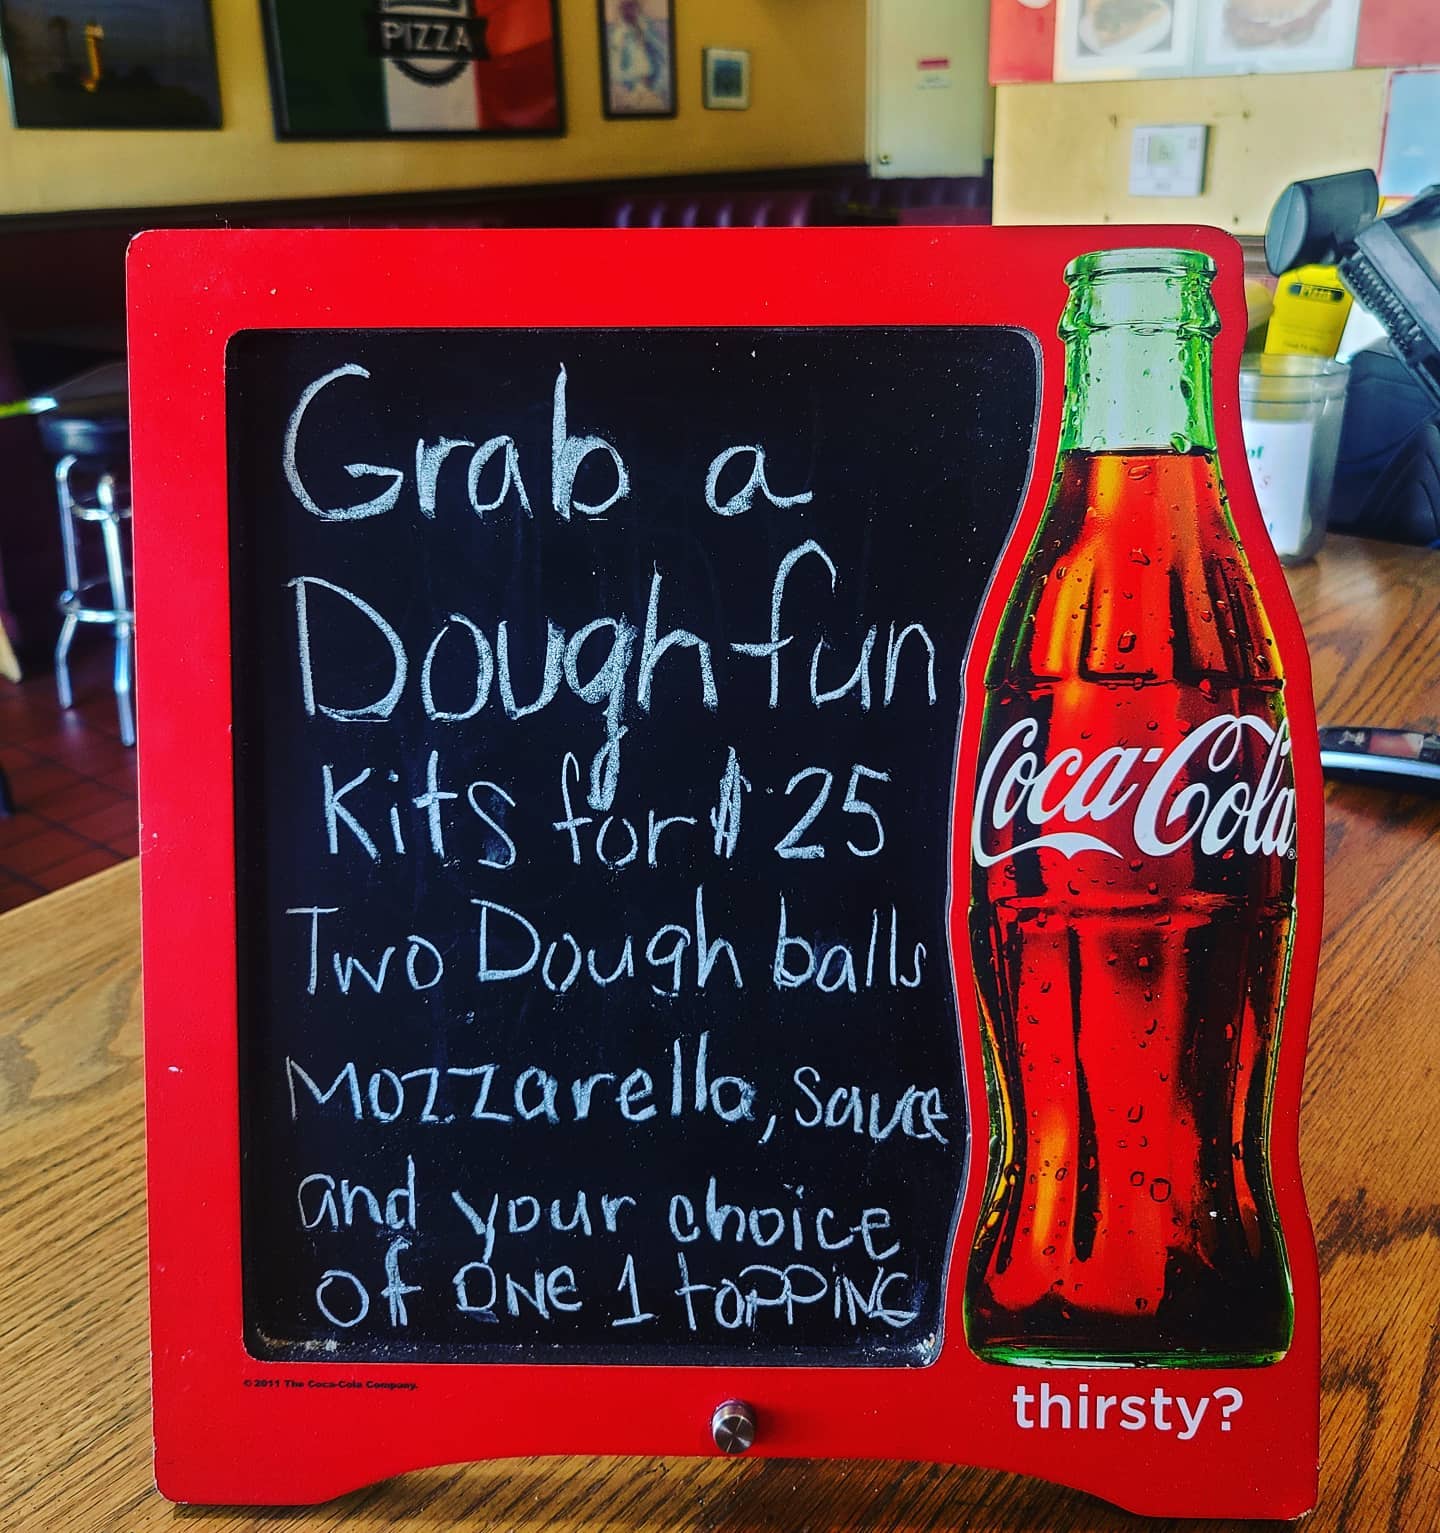 PIZZA
Pizza
Grab a
Dough fun
Kits for $25
Two Dough balls
Mozzarella, Sauce
and your choice
of ONE 1 tOPPiNG
Coca-Cola
©2011 The Coca-Cola Company.
thirsty?